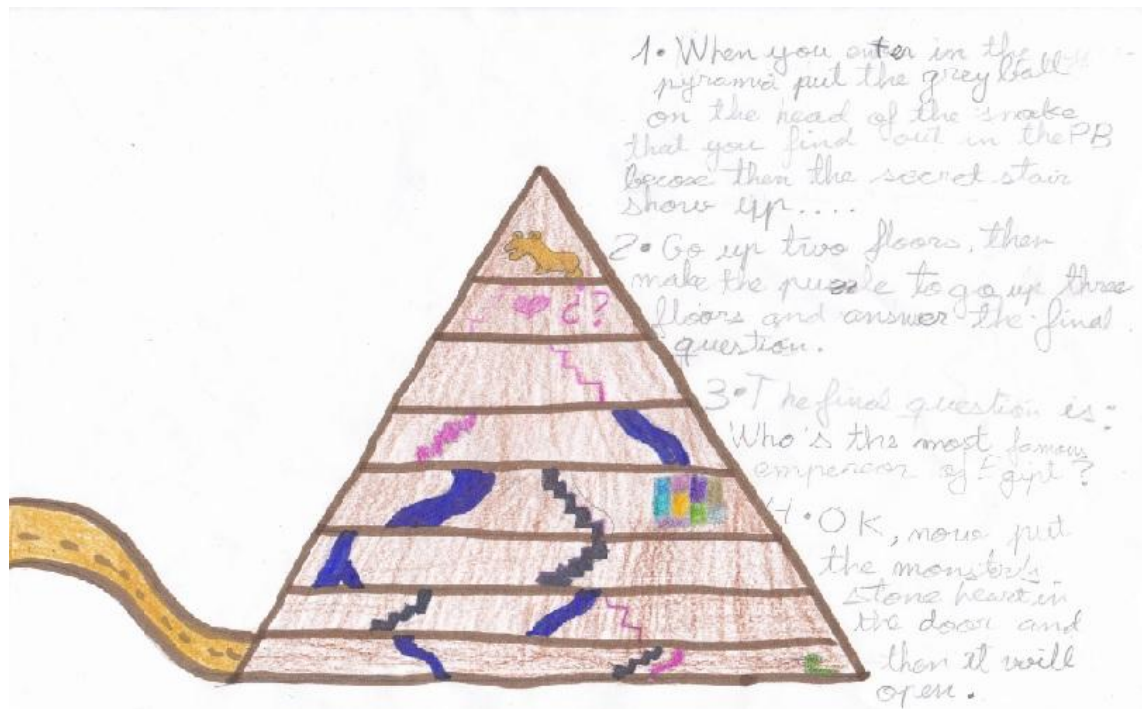 1. When you enter in the
pyramid put the grey ball
on the head of the snake
that you find out in the PB
becose then the secret stair
show upp....
2. Go up two floors, then
make the puzzle to go up three
floors and answer the final
question.
¿?
3. The final question is:
Who's the most famous
empereor of Egipt?
4. OK, now put
the monster's
stone heart in
the door and
then it will
open.